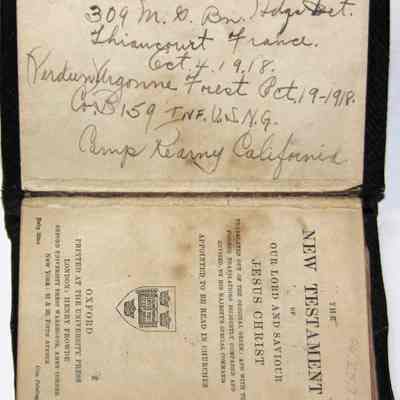 309 M. G. Bn. Hdqs Det.
Thiaucourt France.
Oct. 4. 1918.
(Verdun) Argonne Forest Oct. 19-1918.
Co. B 159 INF. U.S.N.G.
Camp Kearny California
THE
NEW TESTAMENT
OF
OUR LORD AND SAVIOUR
JESUS CHRIST
TRANSLATED OUT OF THE ORIGINAL GREEK: AND WITH THE
FORMER TRANSLATIONS DILIGENTLY COMPARED AND
REVISED, BY HIS MAJESTY'S SPECIAL COMMAND
APPOINTED TO BE READ IN CHURCHES
OXFORD
PRINTED AT THE UNIVERSITY PRESS
LONDON: HENRY FROWDE
OXFORD UNIVERSITY PRESS WAREHOUSE, AMEN CORNER
NEW YORK: FIFTH AVENUE
Ruby 32mo